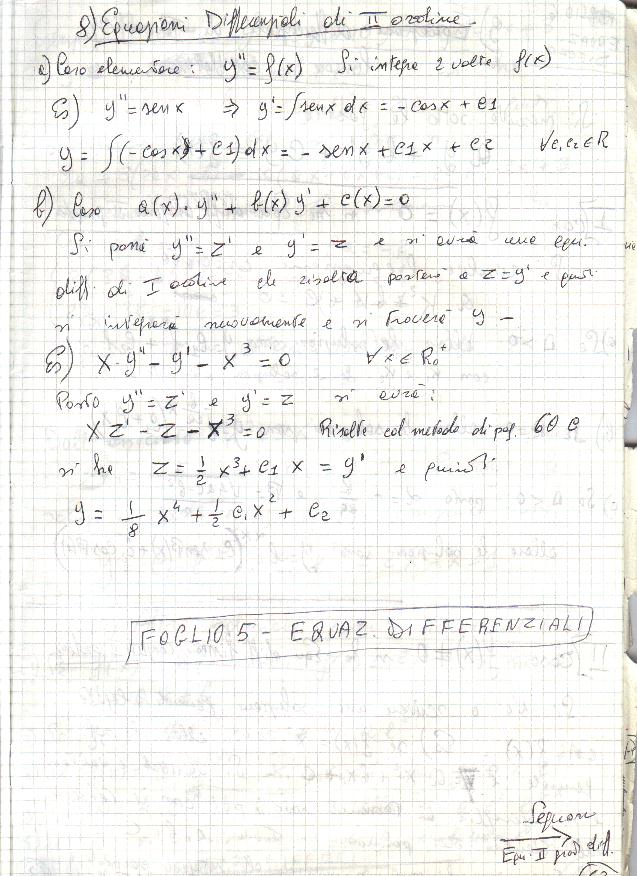 8) Equazioni Differenziali di II ordine
a) Caso elementare: y'' = f(x) Si integra 2 volte f(x)
Es) y'' = sen x ⇒ y' = ∫ sen x dx = - cos x + C1
y = ∫ (- cos x + C1) dx = - sen x + C1 x + C2 ∀ C1, C2 ∈ R
b) Caso a(x) · y'' + b(x) y' + c(x) = 0
Si porrà y'' = z' e y' = z e si avrà una equ.
diff. di I ordine che risolta porterà a z = y' e quindi
si integrerà nuovamente e si troverà y -
Es) x · y'' - y' - x³ = 0 ∀ x ∈ R₀⁺
Posto y'' = z' e y' = z si avrà:
x z' - z - x³ = 0 Risolta col metodo di pag. 60 C
si ha z = 1/2 x³ + C1 x = y' e quindi
y = 1/8 x⁴ + 1/2 C1 x² + C2
FOGLIO 5 - EQUAZ. DIFFERENZIALI
Seguono
Equ. II diff.